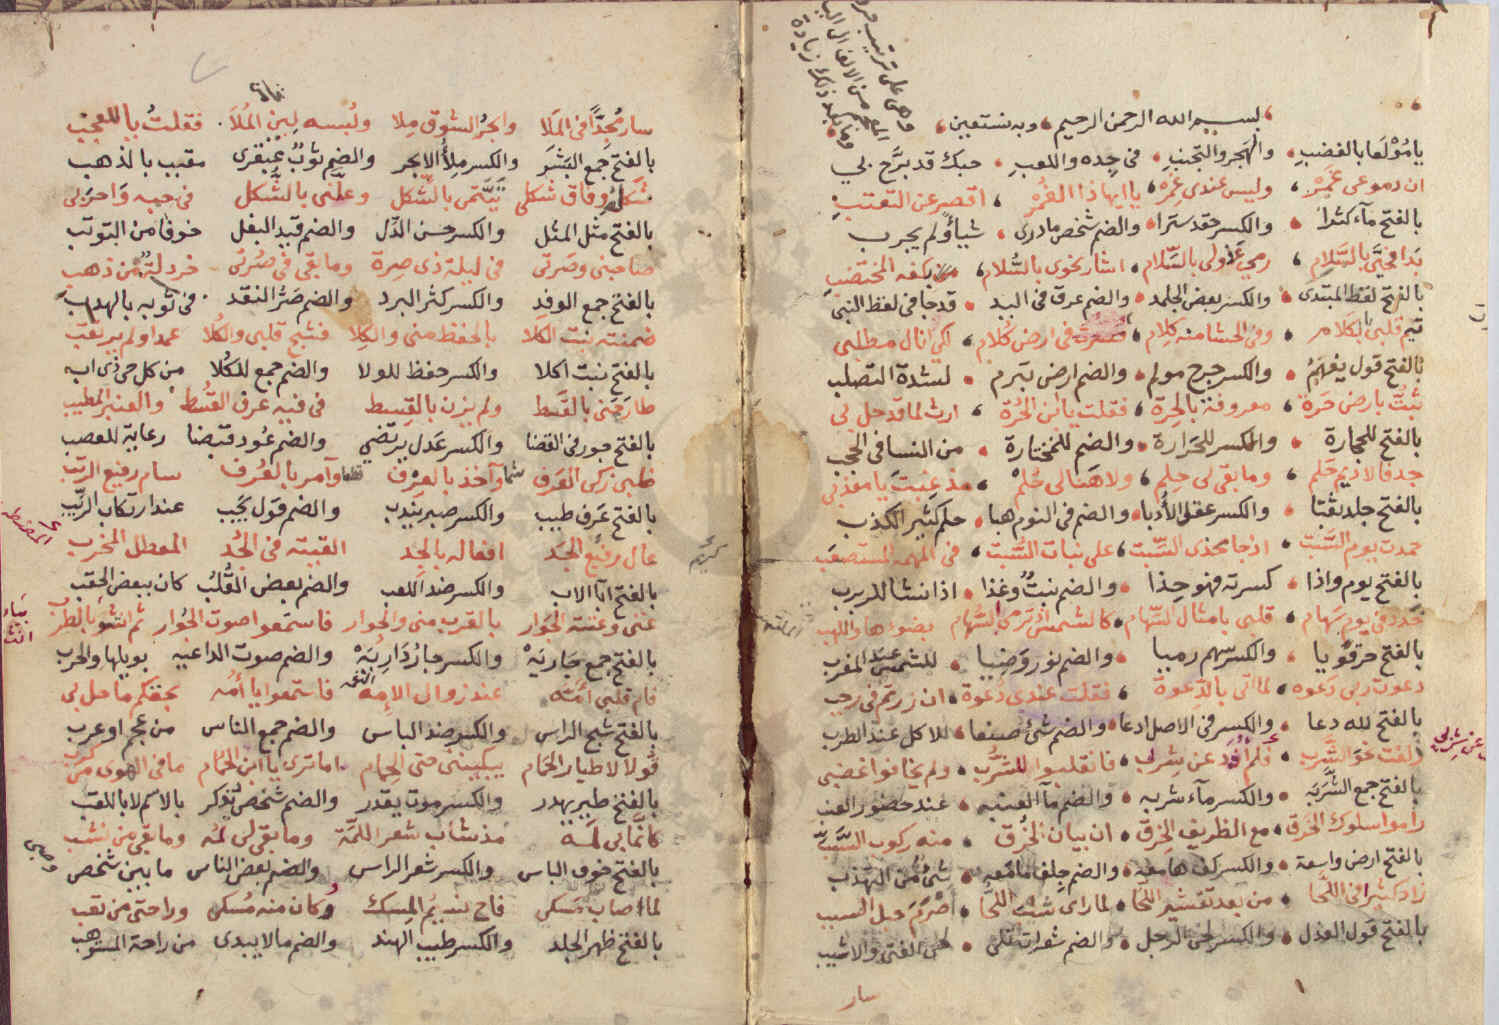 بسم الله الرحمن الرحيم وبه نستعين
يا مؤلعا بالغضب والهجر والتجنب في جده واللعب حبك قد برح بي
ان دموعي غمر وليس عندي غمر يا ايها ذا الغمر اقصر عن التعتب
بالفتح ماء كثرا والكسر حقد سترا والضم شخص ما درى شيأ ولم يجرب
بدا فحيى بالسلام رمى عذولي بالسلام اشار نحوي بالسلام بكفه المختضب
بالفتح لفظ المبتدى والكسر بعض الجلمد والضم عرق في اليد قد جا في لفظ النبي
تيم قلبي بالكلام وفي الحشا منه كلام في ارض كلام لكي انال مطلبي
بالفتح قول يفهم والكسر جرح مولم والضم ارض تبرم لشدة التصلب
ثبت بارض حرة معروفة بالحرة فقلت يا ابن الحرة ارث لما قد حل بي
بالفتح للحجارة والكسر للحرارة والضم للمختارة من النسا في الحجب
جد فالاديم حلم وما بقي لي حلم ولا هنا لي حلم مذ غبت يا معذبي
بالفتح جلد نقبا والكسر عقل الأدبا والضم في النوم هبا حلم كثير الكذب
حمدت يوم السبت اذ جا محذي السبت على نبات السبت في المهمه المستصعب
بالفتح يوم واذا كسرته فهو حذا والضم نبت وغذا اذا نشا للربرب
خدد في يوم سهام قلبي بامثال السهام كالشمس اذ ترمي السهام بضوئها واللهب
بالفتح حر قويا والكسر سهم رميا والضم نور وضيا للشمس عند المغرب
دعوت ربي دعوة لما اتى بالدعوة فقلت عندي دعوة ان زرتم في رجب
بالفتح لله دعا والكسر في الاصل ادعا والضم شئ صنعا للاكل عند الطرب
زلفت نحو الشرب فلم اذد عن شرب فانقلبوا للشرب ولم يخافوا غضبي
بالفتح جمع الشربه والكسر ماء شربه والضم ماء العنبه عند حضور العنب
راموا سلوك الخرق مع الظريف الخرق ان بيان الخرق منه ركوب السبسب
بالفتح ارض واسعة والكسر كف هامعه والضم جلف ما معه شئ من التهذب
زاد كثيرا في اللحا من بعد تقشير اللحا لما رأى شيب اللحا اصرم حبل السبب
بالفتح قول العذل والكسر لحي الرجل والضم شعرات تلي لحي الفتى والاشيب
سار
سار مجدا في الملا وابحر الشوق ملا ولبسه لين الملا فقلت يا للعجب
بالفتح جمع البشر والكسر ملأ الابحر والضم ثوب عبقري مقبب بالذهب
شكله وفاق شكلي تيمني بالشكل وغلني بالشكل في حبه واحربي
بالفتح مثل المثل والكسر حسن الدل والضم قيد البغل خوفا من التوثب
صاحبني وصرتي في ليلة ذي صرة وما بقي في صرتي خردلة من ذهب
بالفتح جمع الوفد والكسر كثر البرد والضم صر النقد في ثوبه بالهدب
ضمنته نبت الكلا بالحفظ مني والكلا فشج قلبي والكلا عمدا ولم يرتقب
بالفتح نبت الكلا والكسر حفظ للولا والضم جمع للكلا من كل حي ذي اب
طارحني بالقسط ولم يزن بالقسط في فيه عرف القسط والعنبر المطيب
بالفتح جور في القضا والكسر عدل يرتضي والضم عود قبضا رعاية للعصب
ظبي زكي العرف وآخذ بالعرف وآمر بالعرف سام رفيع الرتب
بالفتح عرف طيب والكسر صبر يندب والضم قول يجب عند ارتكاب الريب
عال رفيع الجد افعاله بالجد القيته في الجد المعطل المخرب
بالفتح ابا الاب والكسر ضد اللعب والضم بعض القلب كان ببعض الحقب
غنى وغنته الجوار بالقرب مني والجوار فاستمعوا صوت الجوار ثم انثنوا بالطرب
بالفتح جمع جارية والكسر جار داريه والضم صوت الداعيه بويلها والحرب
فام قلبي امه عند زوال الامه فاستمعوا يا امه بحقكم ما حل بي
بالفتح شج الراس والكسر ضد الباس والضم جمع الناس من عجم او عرب
قولا لاطيار الحمام يبكينني حتى الحمام اما ترى يا ابن الحمام ما في الهوى من كرب
بالفتح طير يهدر والكسر موت يقدر والضم شخص يذكر بالاسم لا باللقب
كانما بي لمه مذ شاب شعر اللمة وما بقي لي لمه وما بقي من نشب
بالفتح خوف الباس والكسر شعر الراس والضم بعض الناس ما بين شخص وصبي
لما اصاب مسكي فاح نسيم المسك وكان منه مسكي وراحتي من تعب
بالفتح ظهر الجلد والكسر طيب الهند والضم ما لا يبدي من راحة المستوهب